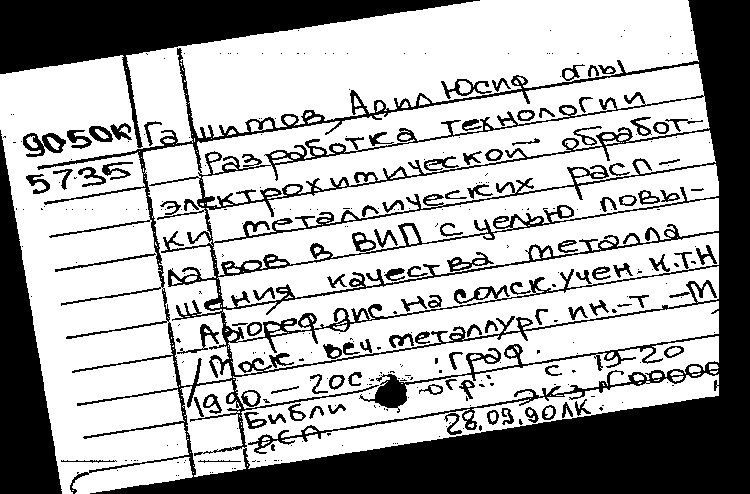 9050к Гашитов, Адил Юсиф оглы
5735 Разработка технологии
электрохимической обработ-
ки металлических расп-
лавов в ВИП с целью повы-
шения качества металла
: Автореф. дис. на соиск. учен. к.т.н
/ Моск. веч. металлург. ин.-т. -М
1990. - 20с : граф.
Библи огр.: с. 19-20
ДСП. экз. №00000
28.09.90 ЛК.